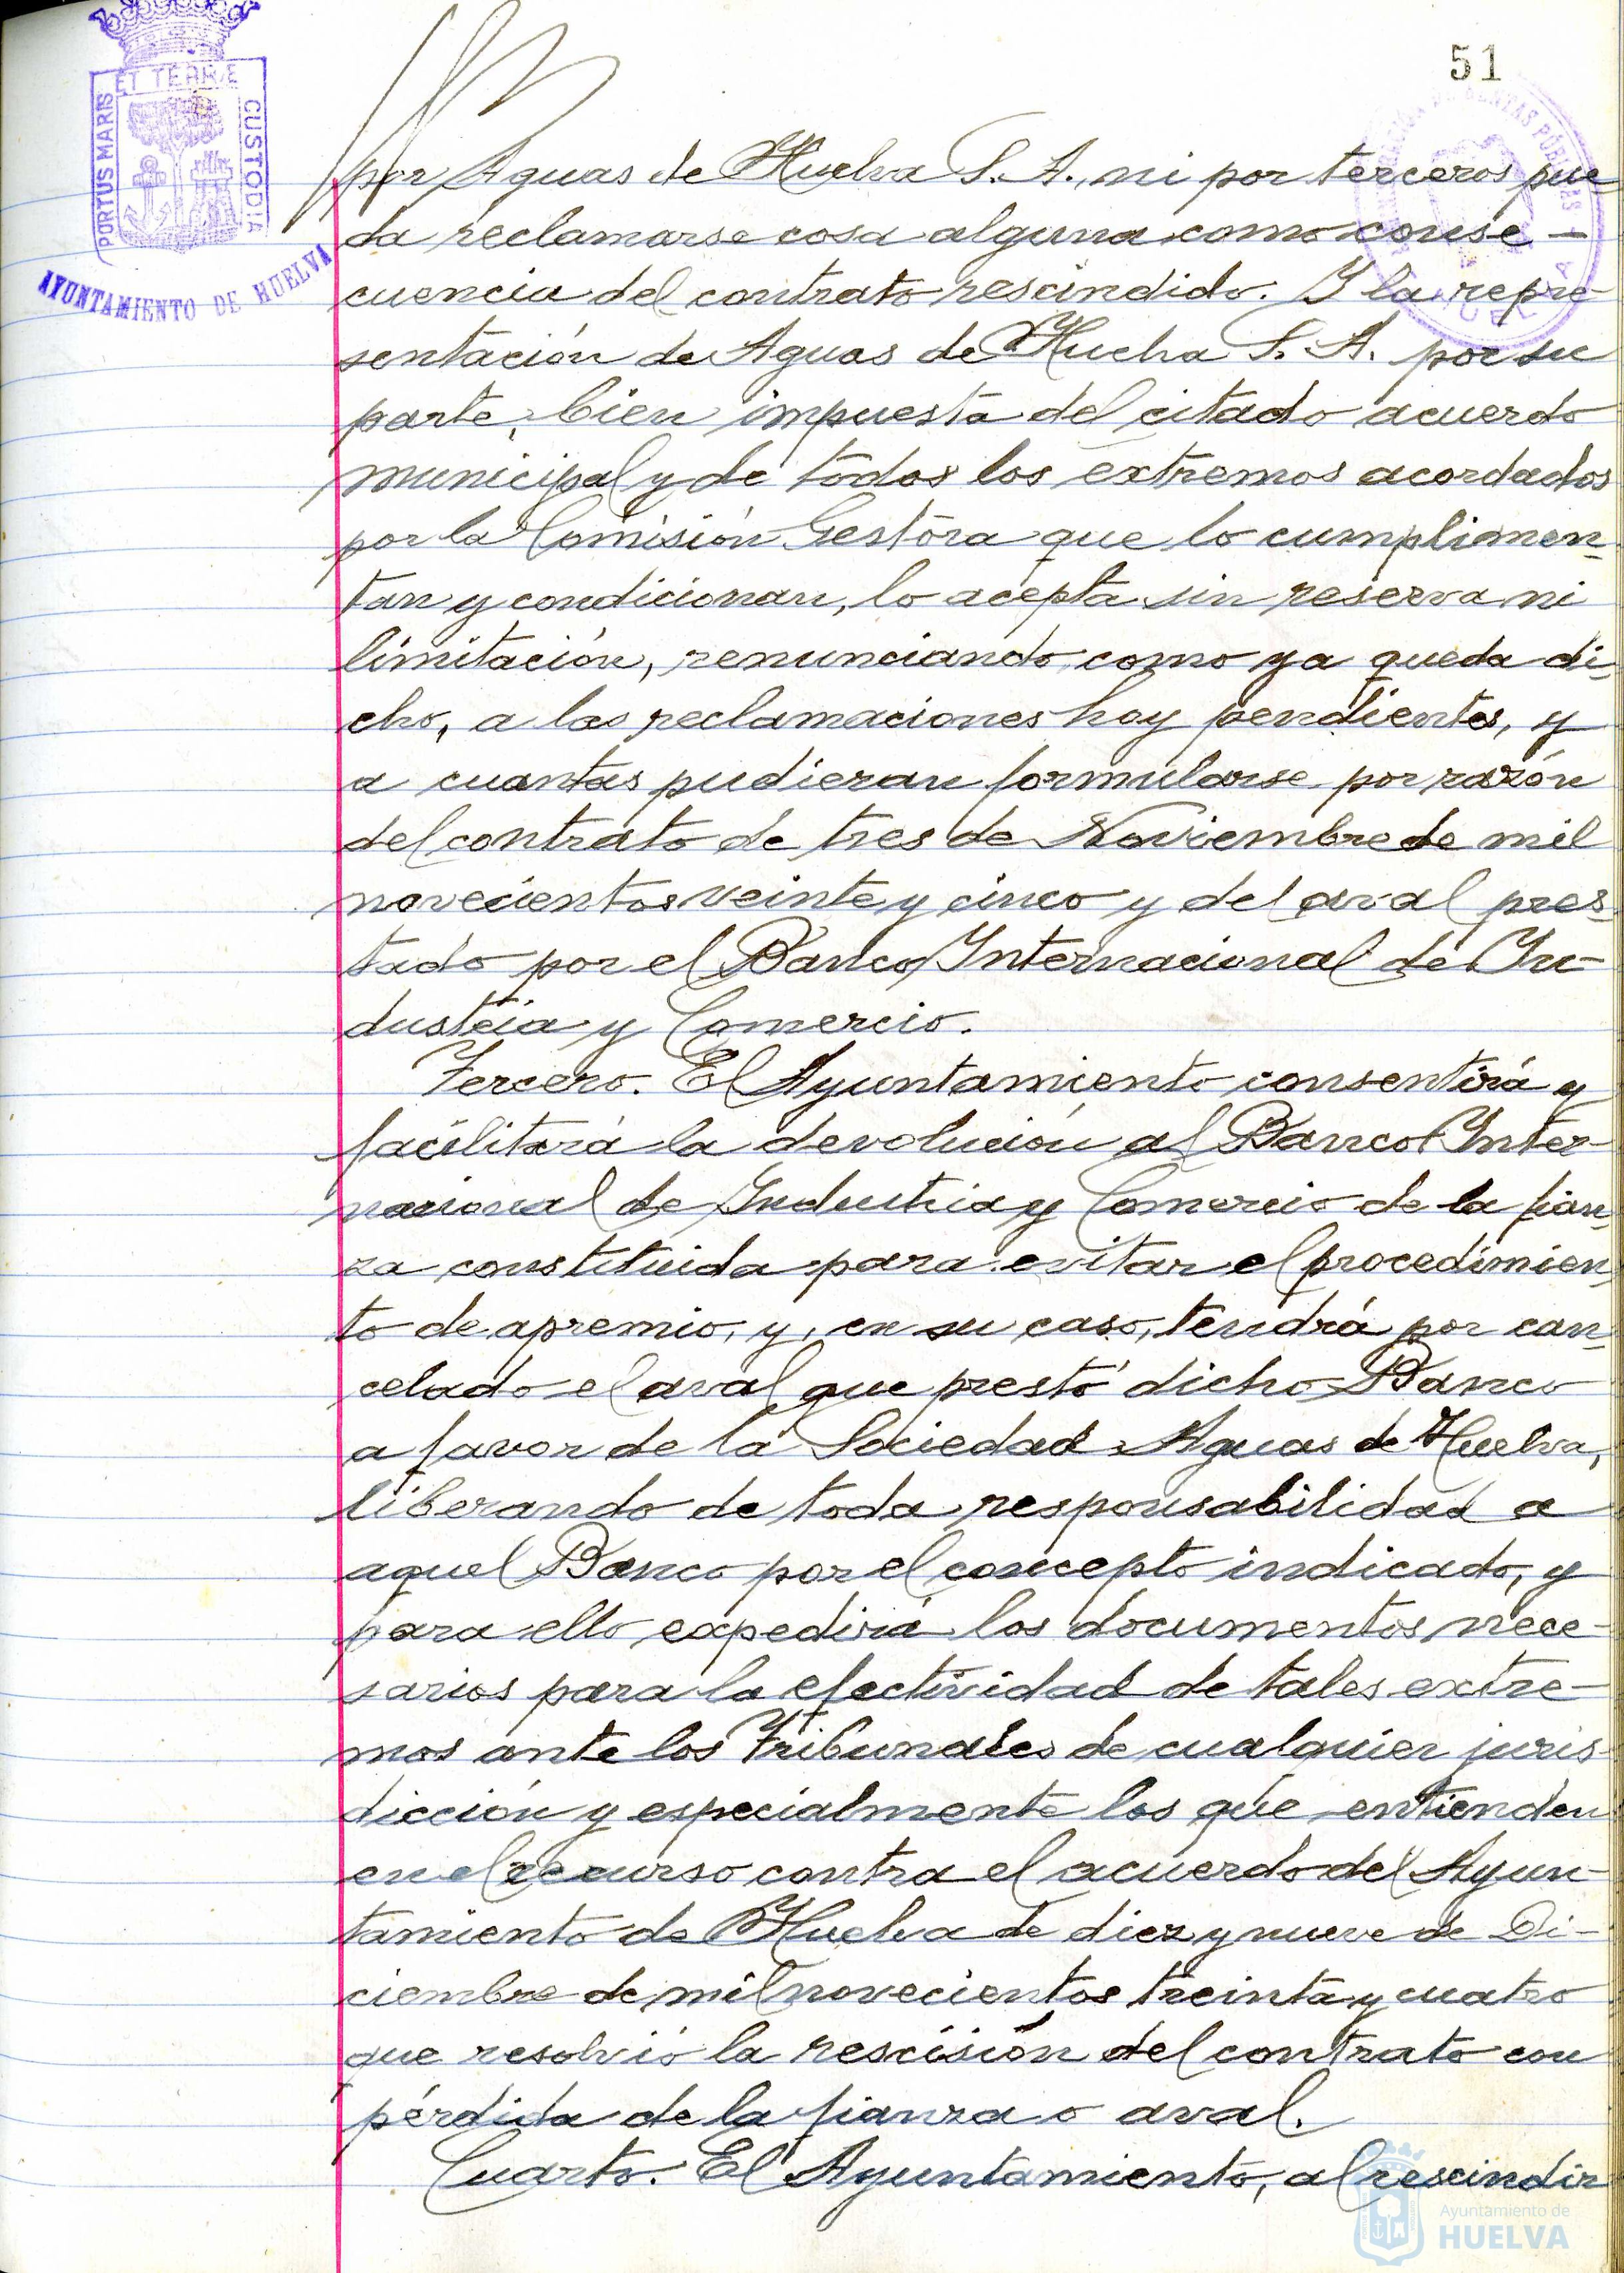 51
ET TERRÆ
PORTUS MARIS
CUSTODIA
AYUNTAMIENTO DE HUELVA
por Aguas de Huelva S. A., ni por terceros pue
da reclamarse cosa alguna como conse-
cuencia del contrato rescindido. Y la repre-
sentación de Aguas de Huelva S. A. por su
parte, bien impuesta del citado acuerdo
municipal y de todos los extremos acordados
por la Comisión Gestora que lo cumplimen-
tan y condicionan, lo acepta sin reserva ni
limitación, renunciando, como ya queda di-
cho, a las reclamaciones hoy pendientes, y
a cuantas pudieran formularse por razón
del contrato de tres de Noviembre de mil
novecientos veinte y cinco y del aval pres-
tado por el Banco Internacional de In-
dustria y Comercio.
Tercero. El Ayuntamiento consentirá y
facilitará la devolución al Banco Inter-
nacional de Industria y Comercio de la fian-
za constituida para evitar el procedimien-
to de apremio, y, en su caso, tendrá por can-
celado el aval que prestó dicho Banco
a favor de la Sociedad Aguas de Huelva,
liberando de toda responsabilidad a
aquel Banco por el concepto indicado, y
para ello expedirá los documentos nece-
sarios para la efectividad de tales extre-
mos ante los Tribunales de cualquier juris-
dicción y especialmente los que entienden
en el recurso contra el acuerdo del Ayun-
tamiento de Huelva de diez y nueve de Di-
ciembre de mil novecientos treinta y cuatro
que resolvió la rescisión del contrato con
pérdida de la fianza o aval.
Cuarto. El Ayuntamiento, al rescindir
Ayuntamiento de
HUELVA